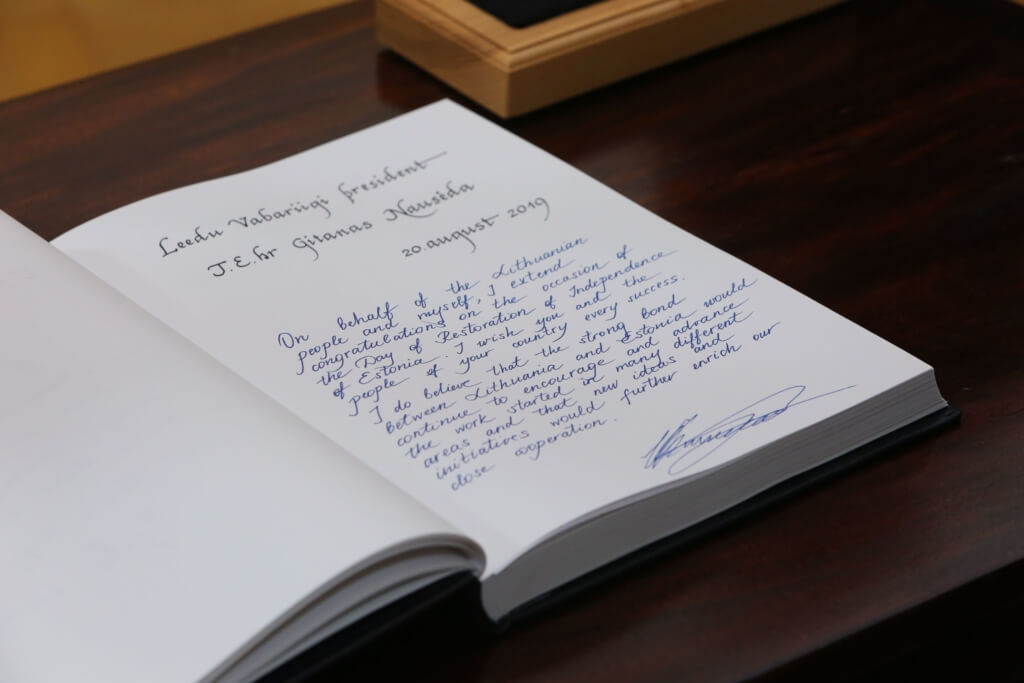 Leedu Vabariigi president
T.E.hr Gitanas Nausėda
20. august 2019
On behalf of the Lithuanian
people and myself, I extend
congratulations on the occasion of
the Day of Restoration of Independence
of Estonia. I wish you and the
people of your country every success.
I do believe that the strong bond
between Lithuania and Estonia would
continue to encourage and advance
the work started in many different
areas and that new ideas and
initiatives would further enrich our
close cooperation.